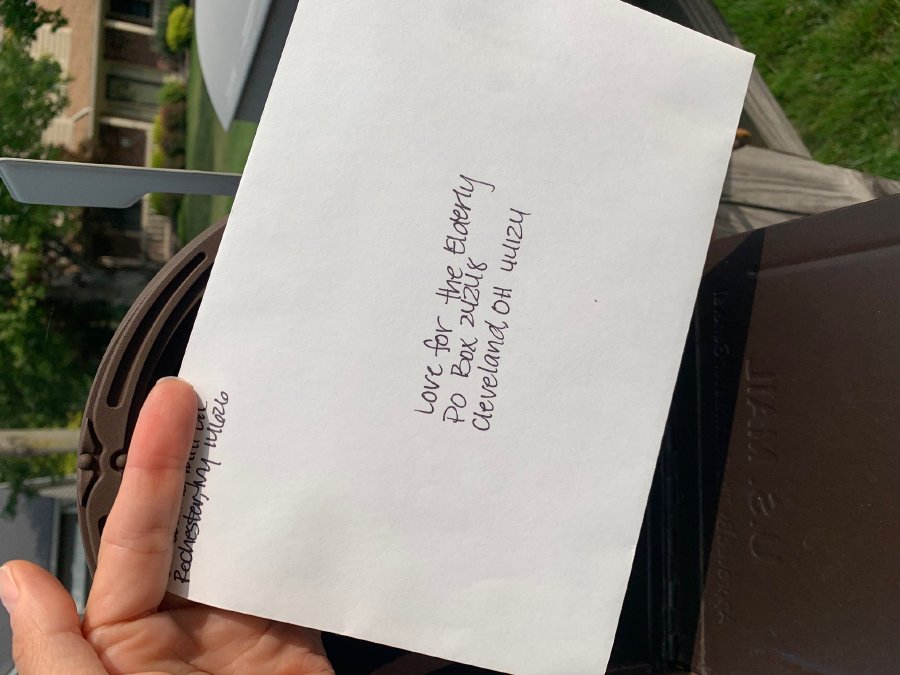 Rochester, NY 14626
Love for the Elderly
PO Box 24248
Cleveland OH 44124
U.S. MAIL